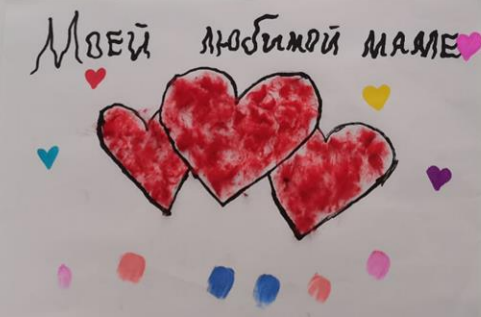 Моей любимой маме